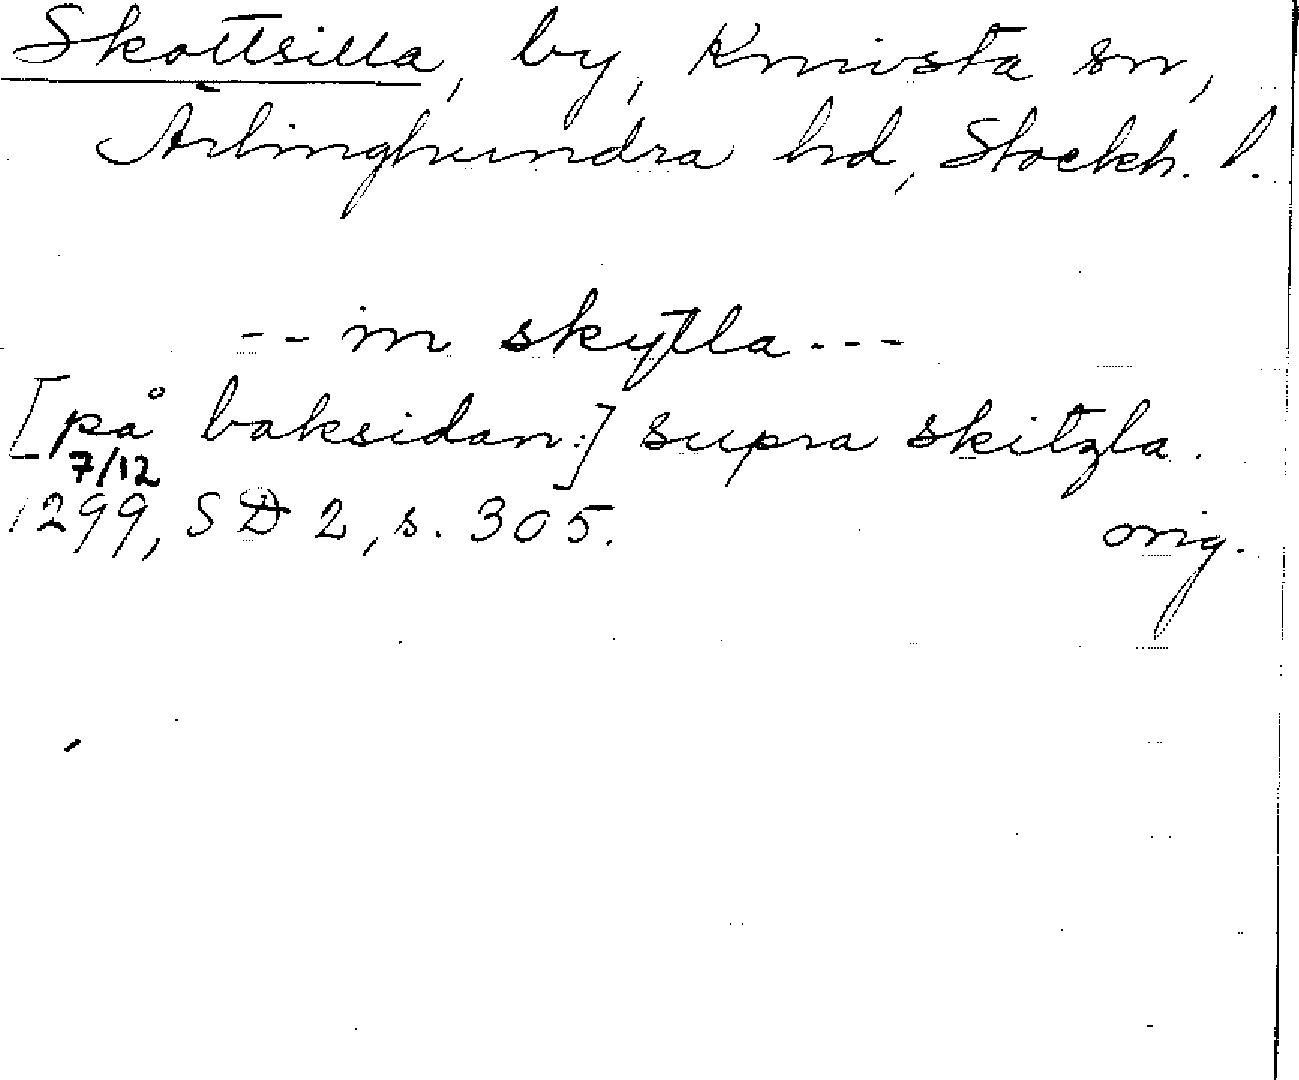 Skottsilla, by, Knivsta sn,
Ärlinghundra hd, Stockh. l.
-- in skytlla ---
[på baksidan:] supra skitzla.
7/12
1299, SD 2, s. 305. orig.